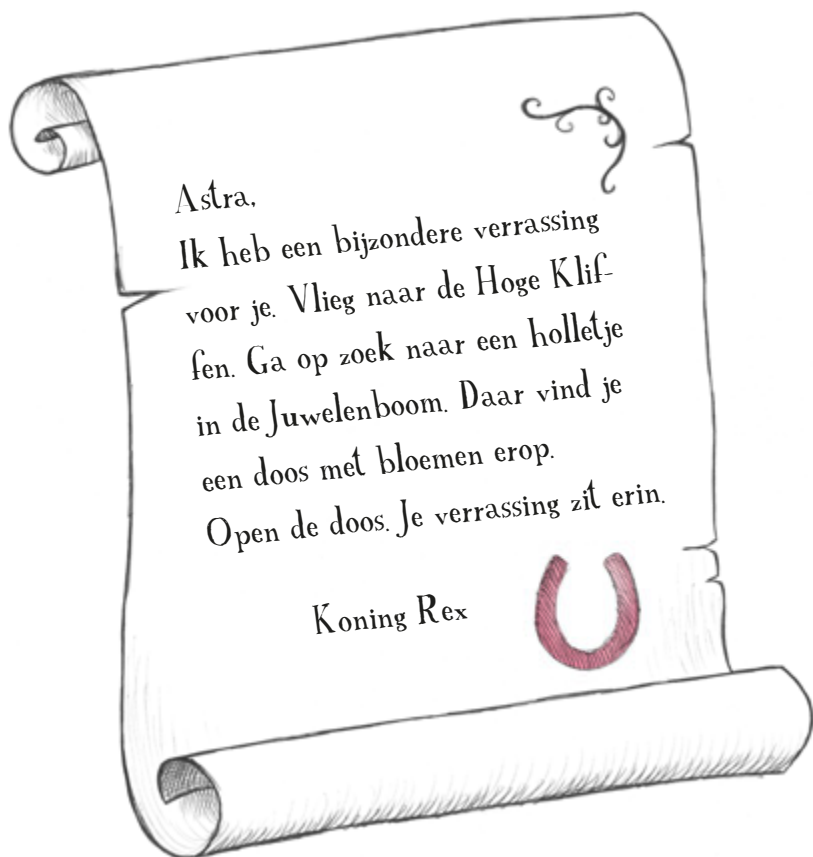 Astra,
Ik heb een bijzondere verrassing
voor je. Vlieg naar de Hoge Klif-
fen. Ga op zoek naar een holletje
in de Juwelenboom. Daar vind je
een doos met bloemen erop.
Open de doos. Je verrassing zit erin.
Koning Rex